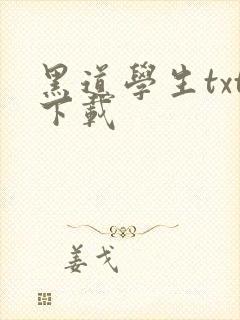 黑道學生txt
下載
姜戈